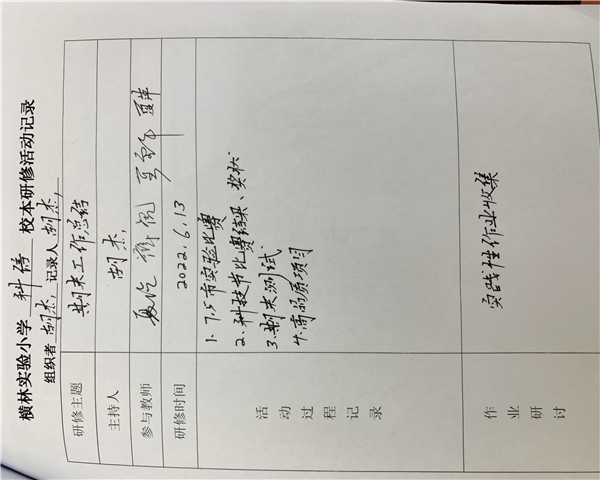 横林实验小学 科信 校本研修活动记录
组织者 胡杰 记录人 胡杰
研修主题 期末工作总结
主持人 胡杰
参与教师
研修时间 2022.6.13
活动过程记录
1. 7.5市实验比赛
2. 科技节比赛结果、奖状
3. 期末测试
4. 高品质项目
作业研讨 实践性作业收集